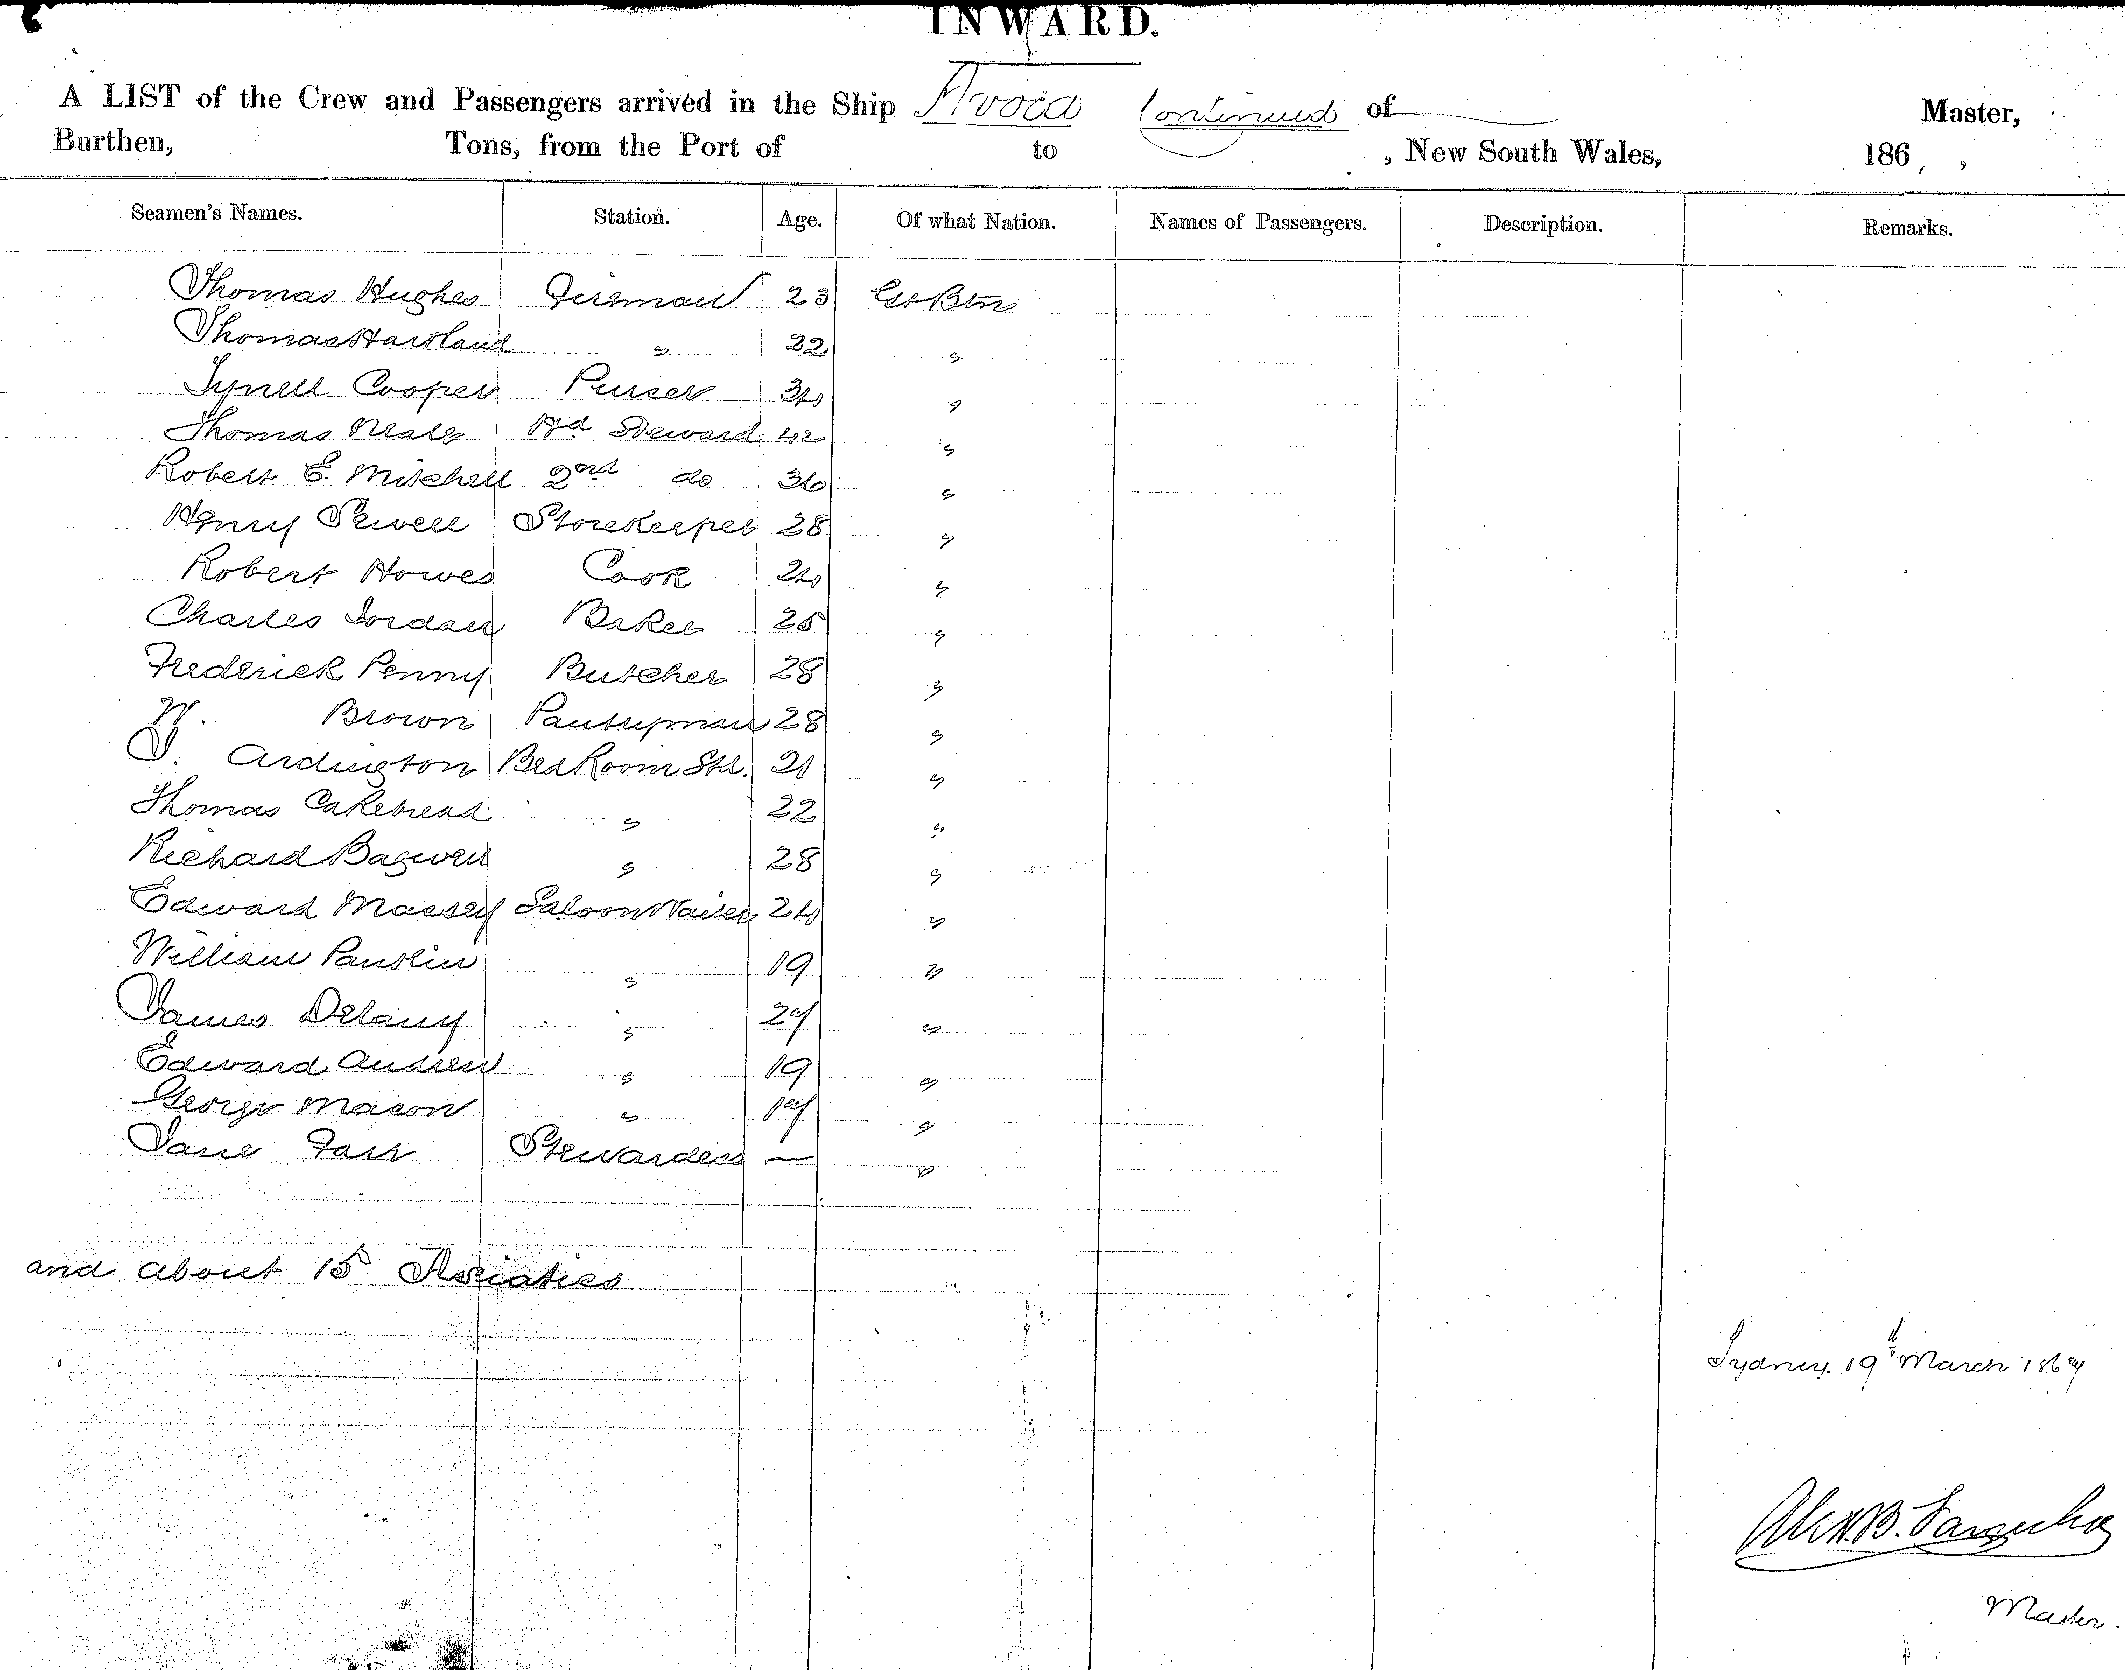 INWARD.
A LIST of the Crew and Passengers arrived in the Ship Avoca Continued of Master,
Burthen, Tons, from the Port of to , New South Wales, 186 ,
Seamen's Names. Station. Age. Of what Nation. Names of Passengers. Description. Remarks.
Thomas Hughes Fireman 23 Gt Btn
Thomas Hartland " 22 "
Cooper Purser 34 "
Thomas Neale Hd Steward 42 "
Robert E. Mitchell 2nd do 36 "
Henry Sewell Storekeeper 28 "
Robert Howes Cook 24 "
Charles Jordan Baker 25 "
Frederick Penny Butcher 28 "
W. Brown Pantryman 28 "
J. Ardington Bed Room Std. 21 "
Thomas Cakebread " 22 "
Richard Bagwell " 28 "
Edward Massey Saloon Waiter 24 "
William Pauslin " 19 "
James Delany " 27 "
Edward Andrew " 19 "
George Mason " 17 "
Jane Farr Stewardess — "
and about 15 Asiatics
Sydney 19th March 1867
Alexr. B. Farquhar
Master.